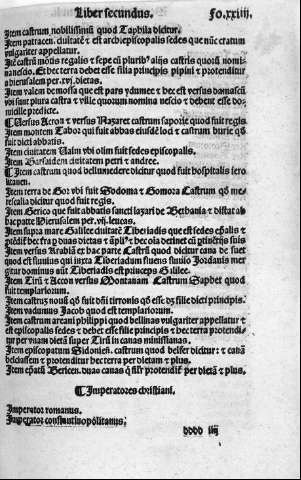 Liber secundus. Fo.xxiiij.
Item castrum nobilissimū quod Taphila dicitur.
Item patracen. ciuitatē & est archiepiscopalis sedes que nūc cratum
vulgariter appellatur.
Itē castrū motis regalis & sepe cū pluribꝰ alijs castris quoꝝ nomi-
na nescio. Et hec terra debet esse filia principis pipini & protenditur
a Hierusalem per .xvj. dietas.
Item valem de mossa que est pars ydumee & hec est versus damascū
vbi sunt plura castra & ville quorum nomina nescio & debent esse do-
micille predicte.
¶ Versus Acron & versus Nazaret castrum saporie quod fuit regis.
Item montem Tabor qui fuit abbas eiusdē loci & castrum burie qđ
fuit dicti abbatis.
Item ciuitatem Naim vbi olim fuit sedes episcopalis.
Item Barsaidem ciuitatem petri & andree.
¶ Item castrum quod bellumedere dicitur quod fuit hospitalis iero
solitani.
Item terra de Gor vbi fuit Sodoma & Gomora Castrum qđ me-
rescalia dicitur quod fuit regis.
Item Gerico que fuit abbatis sancti lazari de Bethania & distat ab
hac parte Hierusalem per .vij. leucas.
Item supra mare Galilee ciuitatē Tiberiadis que est sedes epalis &
Item versus Arabiā & hac parte Castrū quod dicitur caua de suet
quod est fluuius qui iuxta Tiberiadum fluens fluuio Jordanis mer
gitur dominus aūt Tiberiadis est princeps Galilee.
Item Tirū & Accon versus Montanam Castrum Saphet quod
fuit templariorum.
Item castrum nouū qđ fuit dn̄i tirronis qđ esse dꝫ filie dicti principis.
Item vadumus Jacob quod est templariorum.
Item castrum arcani philippi quod bellinas vulgariter appellatur &
est episcopalis sedes & debet esse filie principis & hec terra protendi-
tur per vnam dietā super Tirū in canas minissianas.
Item episcopatum Sidoniēn. castrum quod belfer dicitur: & cauā
belciassem & protenditur hec terra per dietam & plus.
Item epatū Bericen. duas canas q̄ filr̄ protendik̄ per dietā & plus.
¶ Imperatores christiani.
Imperator romanus.
Imperator constantinopolitanus.
dddd iiij